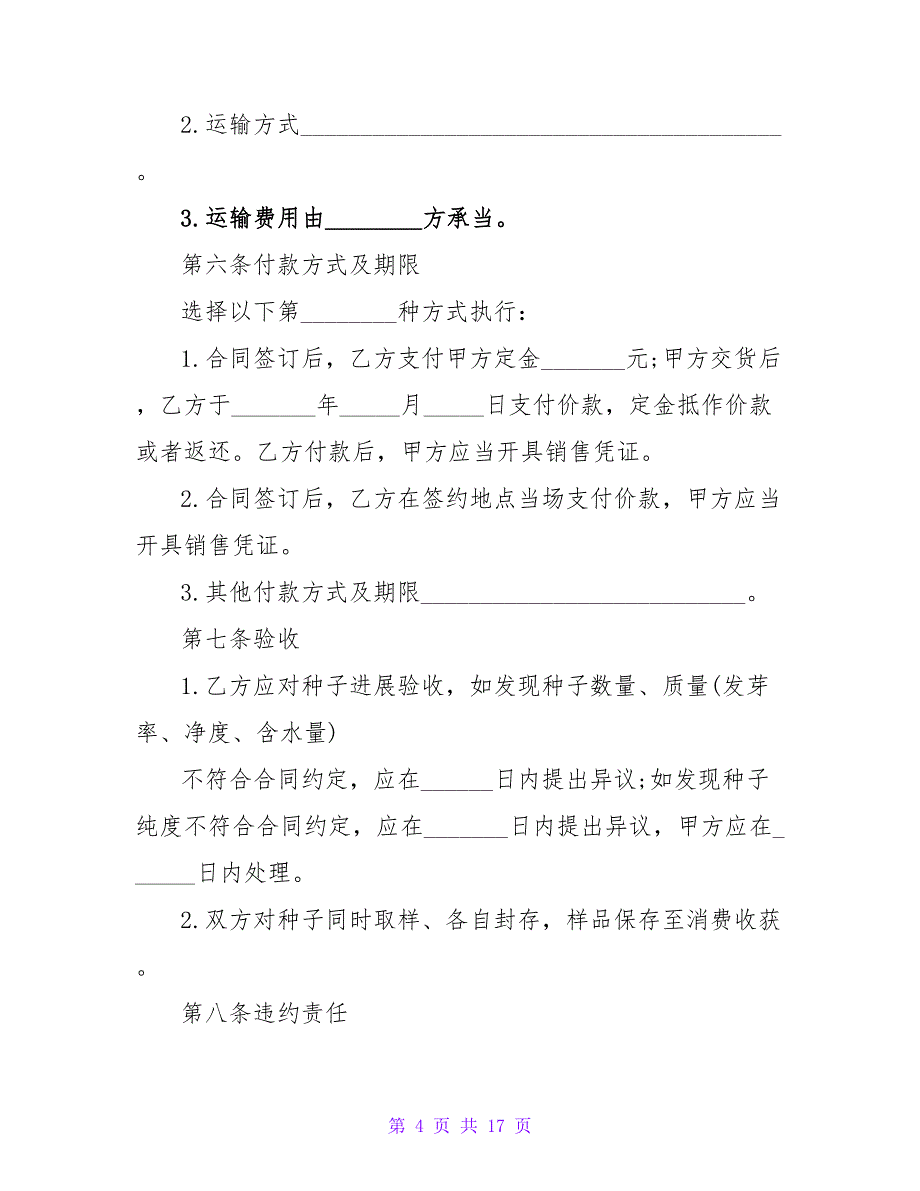 2.运输方式________________________________________
。
3.运输费用由________方承当。
第六条付款方式及期限
选择以下第________种方式执行：
1.合同签订后，乙方支付甲方定金_______元;甲方交货后
，乙方于_______年_____月_____日支付价款，定金抵作价款
或者返还。乙方付款后，甲方应当开具销售凭证。
2.合同签订后，乙方在签约地点当场支付价款，甲方应当
开具销售凭证。
3.其他付款方式及期限___________________________。
第七条验收
1.乙方应对种子进展验收，如发现种子数量、质量(发芽
率、净度、含水量)
不符合合同约定，应在______日内提出异议;如发现种子
纯度不符合合同约定，应在_______日内提出异议，甲方应在_
_____日内处理。
2.双方对种子同时取样、各自封存，样品保存至消费收获
。
第八条违约责任
第 4 页 共 17 页